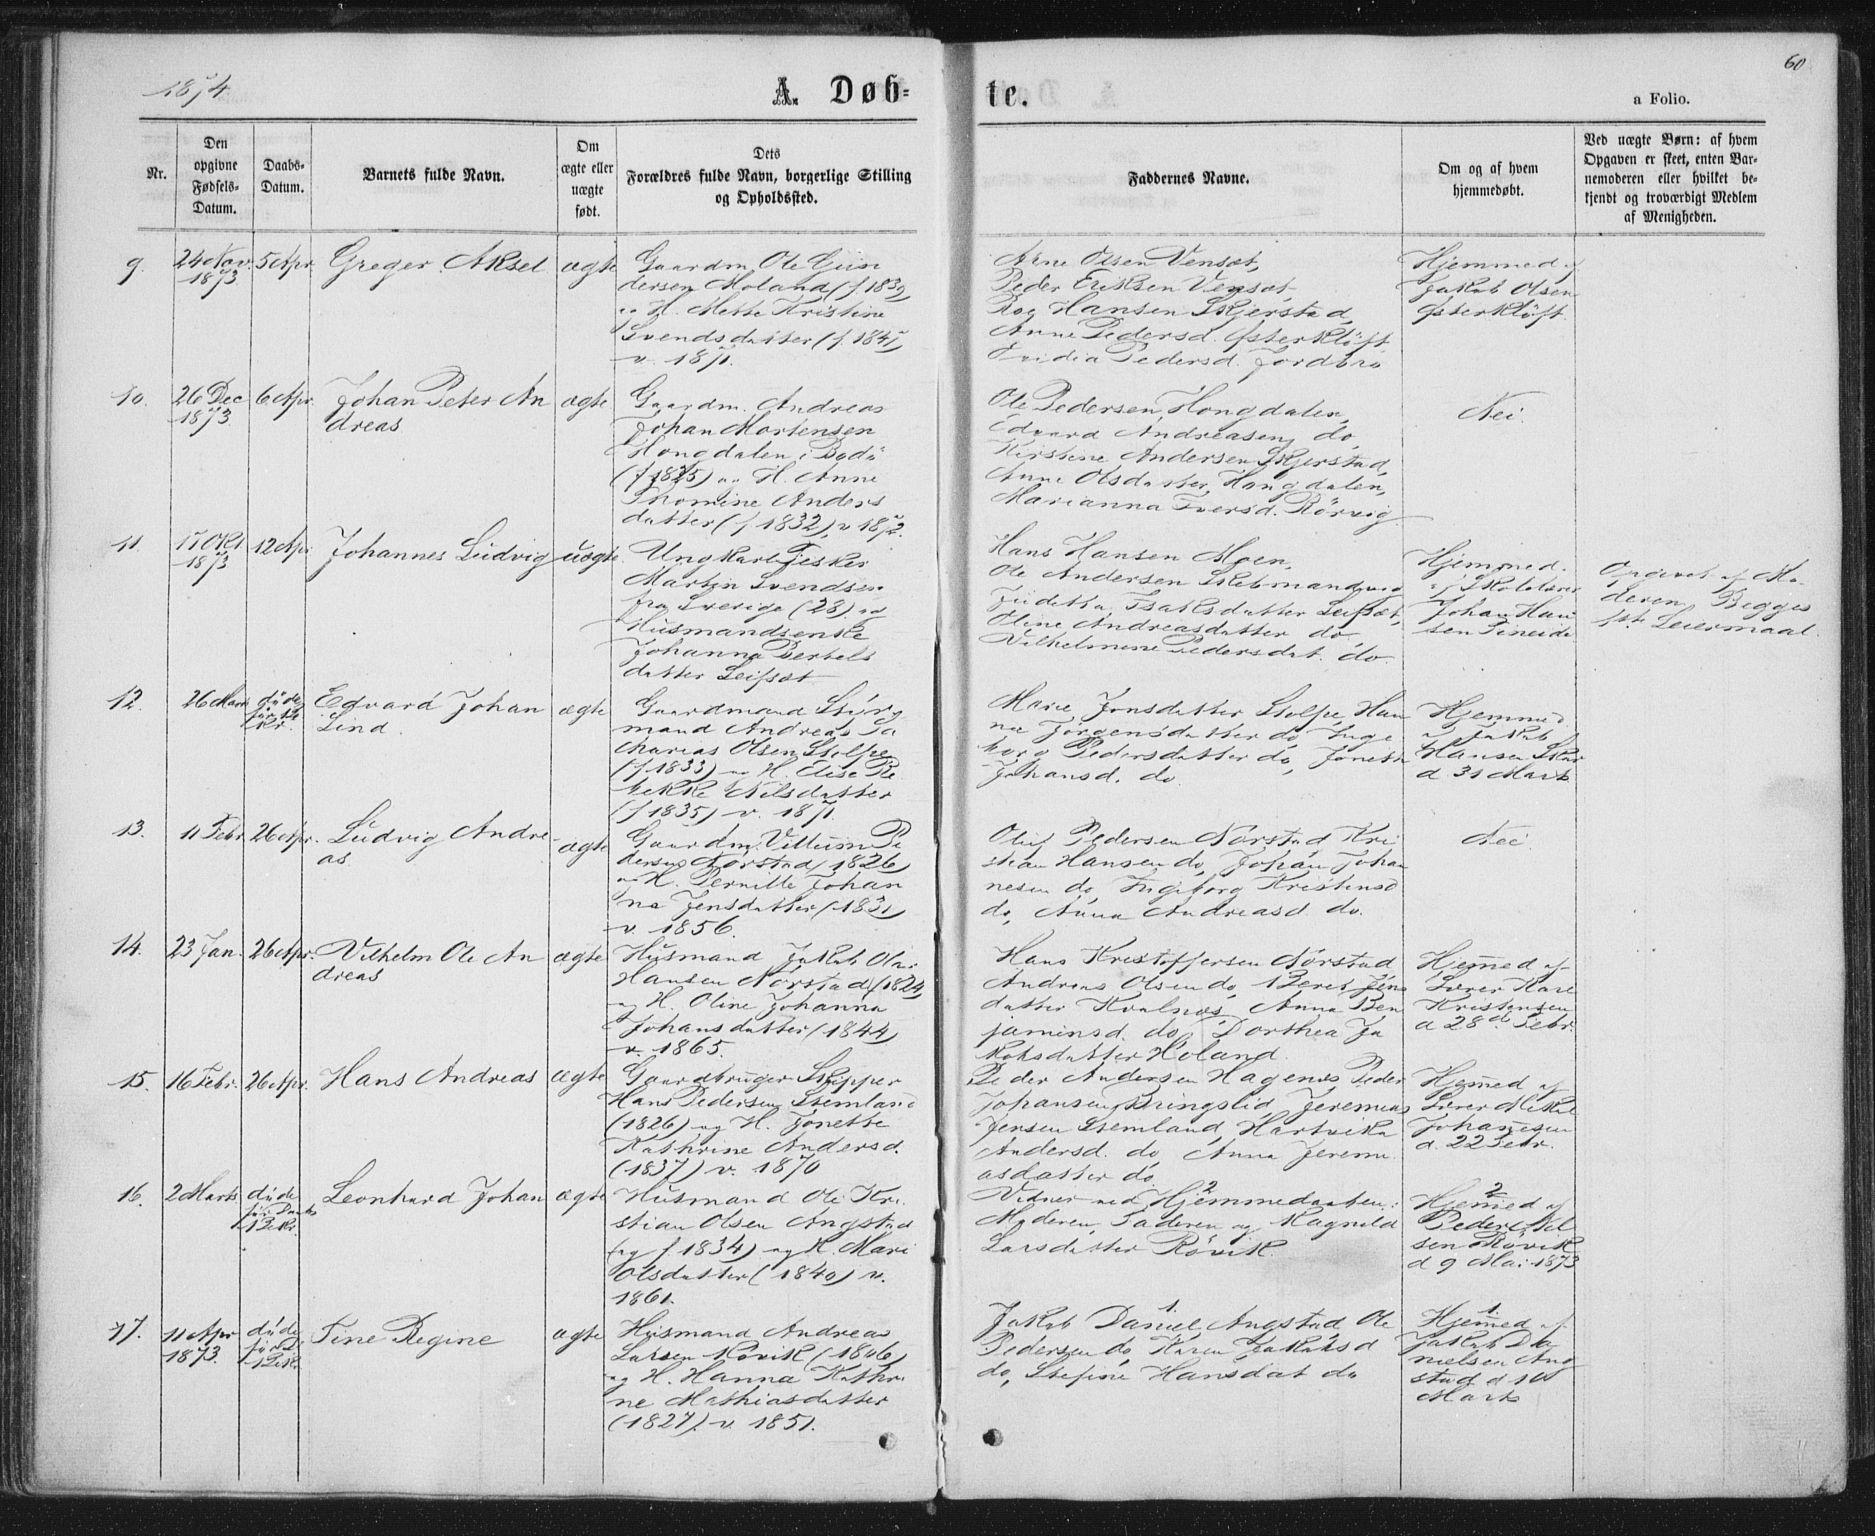 1874
A. Døb-
te.
60
a Folio.
Nr.
Den opgivne Fødsels-Datum.
Daabs-Datum.
Barnets fulde Navn.
Om ægte eller uægte født.
Dets Forældres fulde Navn, borgerlige Stilling og Opholdssted.
Faddernes Navne.
Om og af hvem hjemmedøbt.
Ved uægte Børn: af hvem Opgaven er skeet, enten Barnemoderen eller hvilket bekjendt og troværdigt Medlem af Menigheden.
9.
24 Nov.
1873
5 Apr
Greger Aksel
ægte
Gaardm. Ole Gun
dersen Moland (f 1832)
og H. Mette Kristine
Svendsdatter (f. 1847)
v. 1871.
Arne Olsen Vensæt,
Peder Eriksen Vensæt,
Roe Hansen Skjerstad,
Anne Pedersd. Østerkløft
Pedersd. Jordbro
Hjemmed. af
Jakob Olsen
Østerkløft.
10.
26 Dec
1873
6 Apr.
Johan Peter An
dreas
ægte
Gaardm. Andreas
Johan Mortensen
Hongdalen i Bodø
(f 1825) og H. Anne
Thomine Anders
datter (f 1832) v 1872.
Ole Pedersen Hongdalen,
Edvard Andreasen do,
Kirstine Andersen Skjerstad,
Anne Olsdatter, Hongdalen,
Marianna Iversd. Rörvig
Nei.
11.
17 Okt
1873
12 Apr
Johannes Ludvig
uægte
Ungkarl Fisker
Martin Svendsen
fra Sverige (28) og
Husmandsenke
Johanna Bertels
datter Leifsæt
Hans Hansen Moen,
Ole Andersen
Juditta Isaksdatter Leifsæt,
Oline Andreasdatter do,
Vilhelmine Pedersdat. do.
Hjemmed.
af Skolelærer
Johan Han
sen Fineide
Opgivet af Mo
deren. Begges
1ste Leiermaal.
12.
26 Marts
døde
før
Edvard Johan
Lind.
ægte
Gaardmand Styr
mand Andreas Za
charias Olsen Stolpe
(f. 1833) og H. Elise Re
bekke Nilsdatter
(f 1835) v. 1871.
Marie Jonsdatter Stolpe, Han
na Jørgensdatter do, Inge
borg Pedersdatter do, Jonetta
Johansd. do
Hjemmed.
af Jakob
Hansen
d 31 Marts
13.
11 Febr
26 Apr.
Ludvig Andre
as
ægte
Gaardm. Villum Pe
dersen Nørstad (1826)
og H. Pernille Johan
na Jensdatter (1831)
v. 1856.
Oluf Pedersen Nørstad Kri
stian Hansen do, Johan Johan
nesen do, Ingeborg Kristensd
do, Anna Andreasd do.
Nei.
14.
23 Jan.
26 Apr.
Vilhelm Ole An
dreas
ægte
Husmand Jakob Olai
Hansen Nørstad (1824)
og H. Oline Johanna
Johansdatter (1844)
v. 1865.
Hans Kristoffersen Nørstad
Andreas Olsen do, Beret Jens
datter Kvalnes, Anna Ben
jaminsd. do, Dorthea Ja
kobsdatter Holand.
Hjemmed af
Lærer Karl
Kristensen
d 28d Febr.
15.
16 Febr.
26 Apr.
Hans Andreas
ægte
Gaardbruger Skipper
Hans Pedersen Stemland
(1826) og H. Jonette
Kathrine Andersd.
(1837) v. 1870
Peder Andersen Hagenes Peder
Johansen Bringslid, Jeremias
Jensen Stemland, Hartvika
Andersd. do, Anna Jeremi
asdatter do.
Hjemmed af
Lærer Mikal
Johannesen
d. 22 Febr.
16.
2 Marts
døde
før Daab
Leonhard Johan
ægte
Husmand Ole Kri
stian Olsen Angstad
f. 1834) og H. Mari
Olsdatter (1840) v.
1861.
2
Vidner ved Hjemmedaaben:
Moderen, Faderen og Magnild
Larsdatter Røvik.
2
Hjemmed af
Peder Nil
sen Røvik
d 9 Mai 1873
17.
11 Apr
1873.
døde
før
Tine Regine
ægte
Husmand Andreas
Larsen Røvik (1806)
og H. Hanna Kathri
ne Mathiasdatter
(1827) v. 1851.
1.
Jakob Daniel. Angstad, Ole
Pedersen do, Karen Jakobsd
do, Stefine Hansdat do
1.
Hjemmed af
Jakob Da
nielsen Ang
stad d 10
Marts